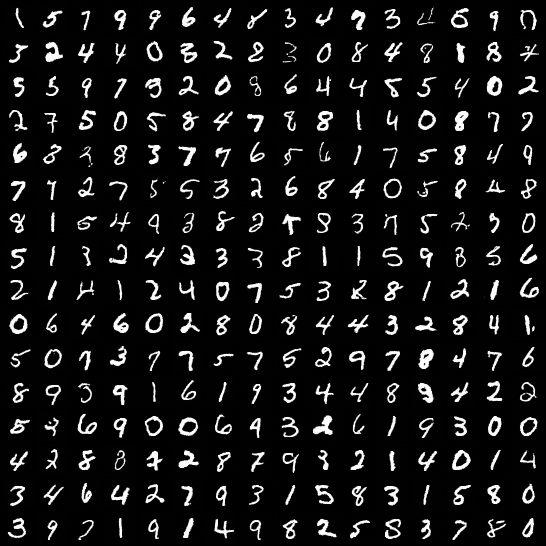 1 5 7 9 9 6 4 8 3 4 7 3 4 6 9 0
5 2 4 4 0 3 2 8 3 0 8 4 8 1 8 7
5 5 9 7 3 2 0 8 6 4 4 8 5 4 0 2
2 7 5 0 5 8 4 7 8 8 1 4 0 8 7 7
6 8 3 8 3 7 7 6 5 6 1 7 5 8 4 9
7 7 2 7 5 5 3 2 6 8 4 0 5 8 4 8
8 1 5 4 9 3 8 2 1 8 3 7 5 2 3 0
5 1 3 2 4 3 3 3 8 1 1 5 9 8 5 6
2 1 4 1 2 4 0 7 5 3 8 8 1 2 1 6
0 6 4 6 0 2 8 0 8 4 4 3 2 8 4 1
5 0 7 3 7 7 5 7 5 2 9 7 8 4 7 6
8 9 3 9 1 6 1 9 3 4 4 8 9 4 2 2
5 3 6 9 0 0 6 9 3 2 6 1 9 3 0 0
4 2 8 8 2 2 8 7 9 3 2 1 4 0 1 4
3 4 6 4 2 7 9 3 1 5 8 3 1 5 8 0
3 9 7 1 9 1 4 9 8 2 5 8 3 7 8 0